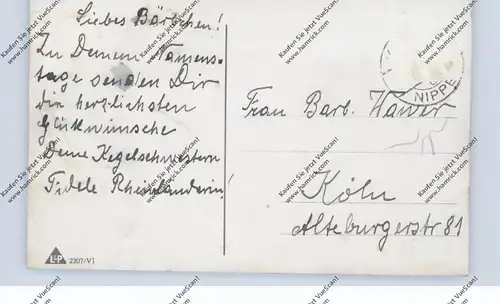 Liebes Bärbchen!
Zu Deinem Namens-
tage senden Dir
die herzlichsten
Glückwünsche
Deine Kegelschwestern
Fidele Rheinländerin!
NIPPE
Frau Barb.
Köln
Alteburgerstr 81
L&P 2207/VI
Kaufen Sie jetzt hier / Buy now here
www.hamrick.com